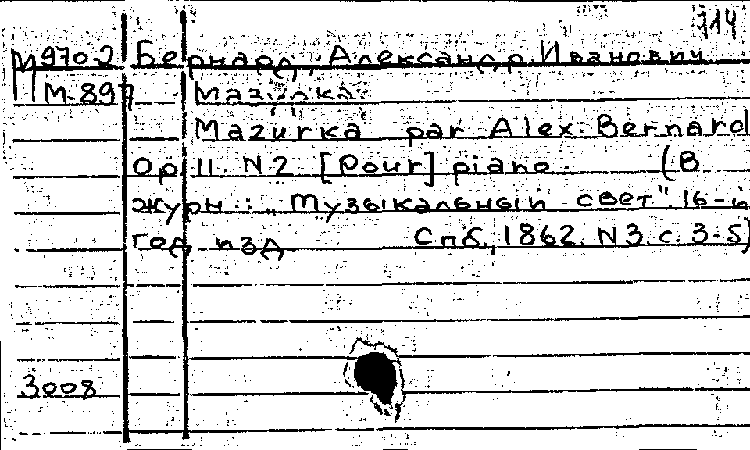 714
М 970-2 Бернард, Александр Иванович
М-897 Мазурка.
Mazurka par Alex. Bernard
Op. 11. N 2. [Pour] piano. (В
журн.: „Музыкальный свет". 16-й
год изд. Спб., 1862. N 3. с. 3-5)
3008